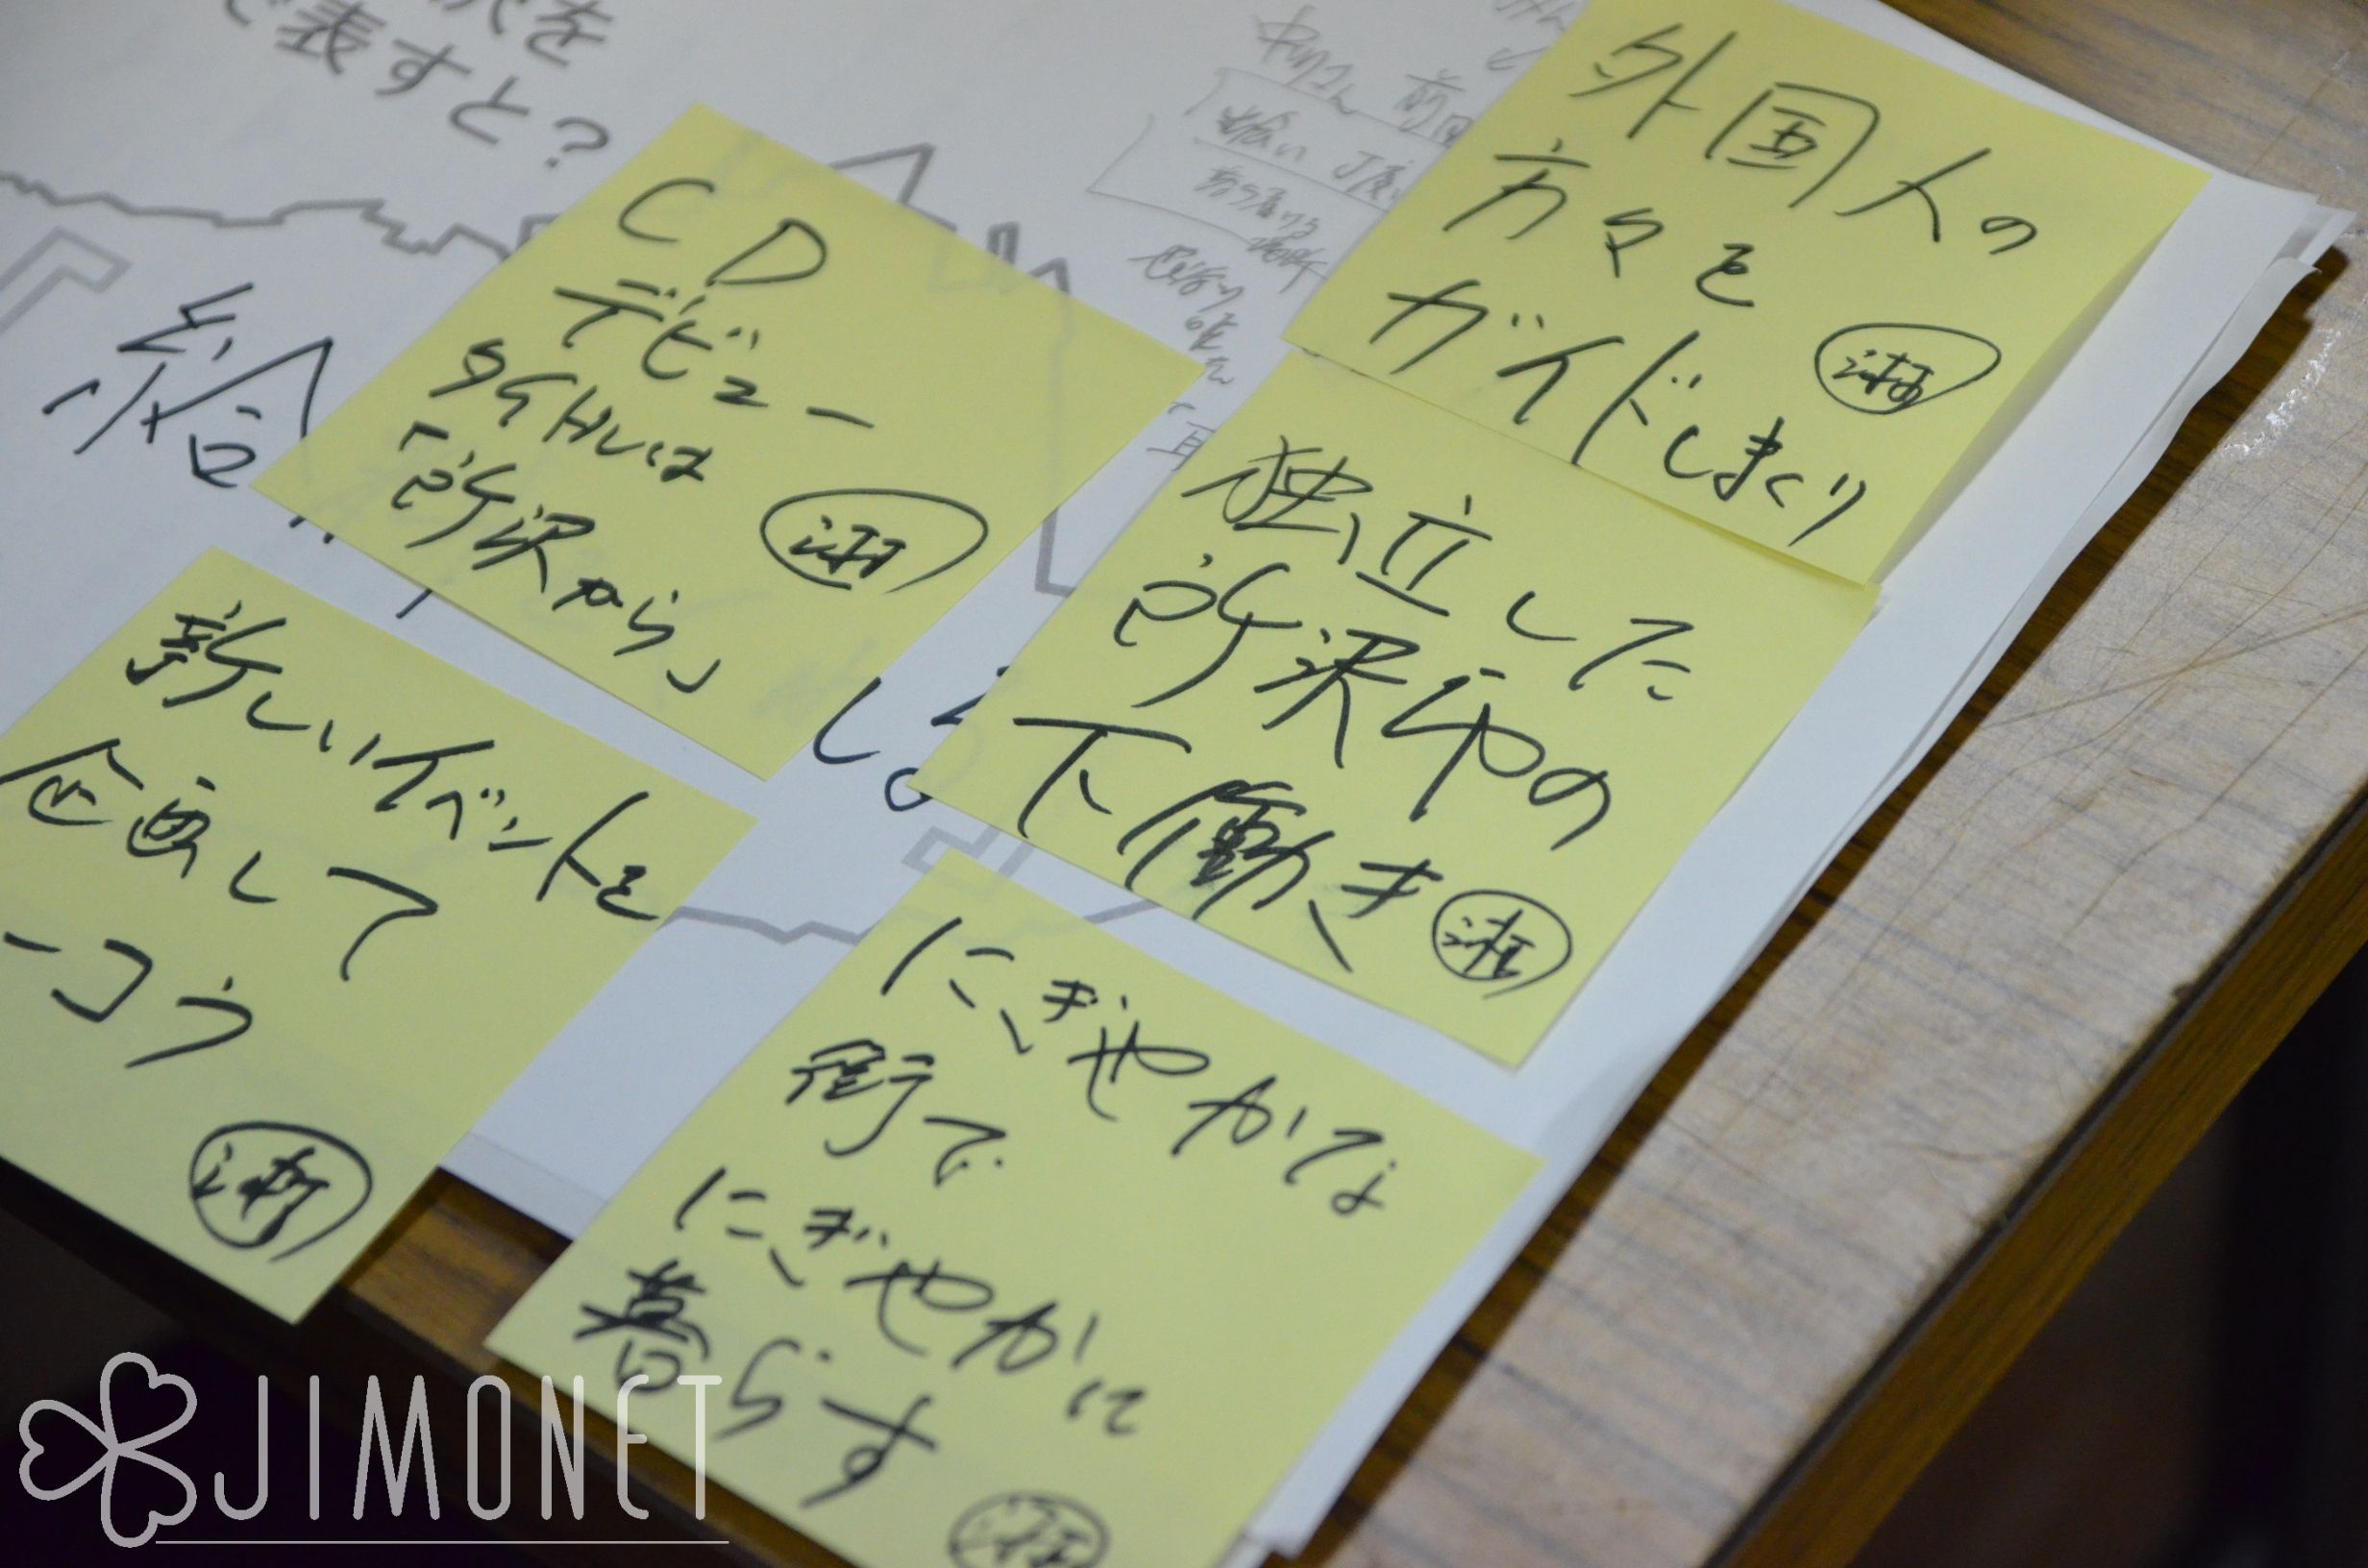 を
で表すと？
外国人の
方々を
ガイドしまくり
湘
CD
デビュー
タイトルは
「所沢から」
湘
独立した
所沢市の
下働き
湘
新しいイベントを
企画して
ーコう
湘
にぎやかな
街で
にぎやかに
暮らす
湘
JIMONET